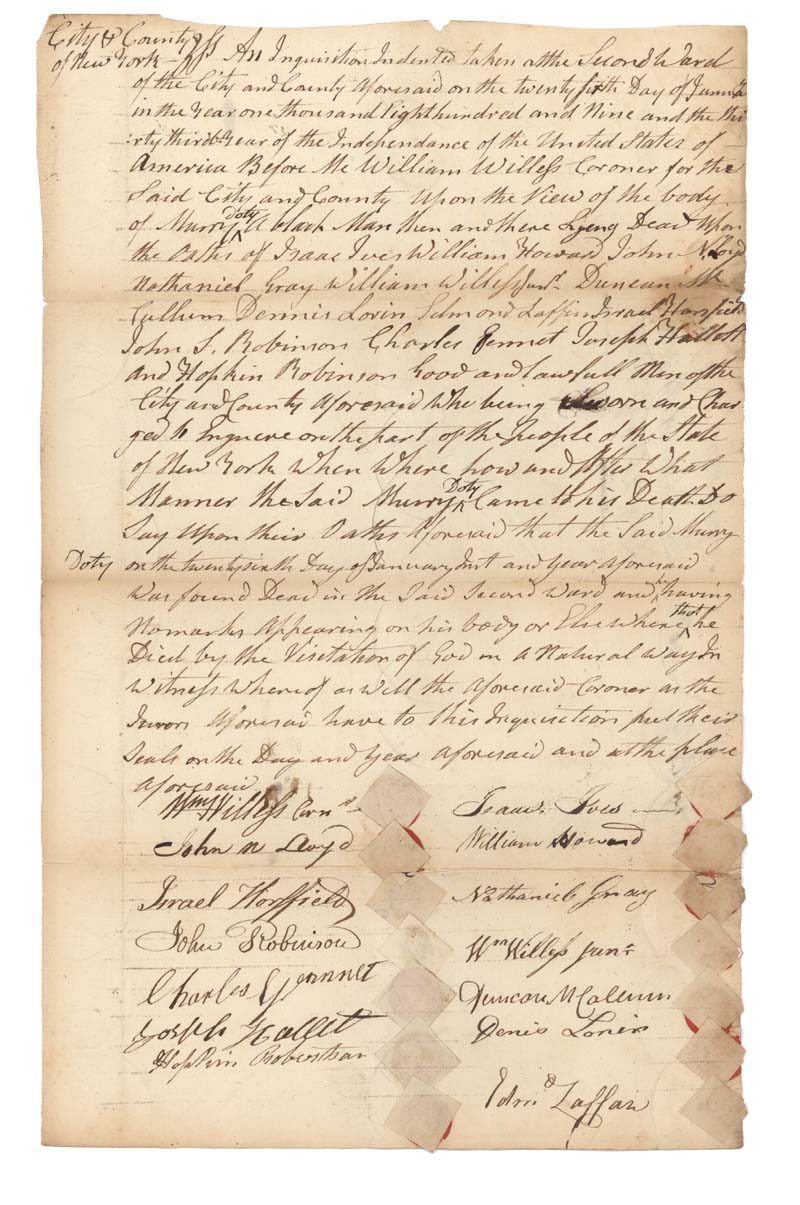 City & County
of New York – ss An Inquisition Indented taken at the Second Ward
of the City and County Aforesaid on the twenty sixth Day of January
in the Year one thousand Eight hundred and Nine and the thi
irty third Year of the Independance of the United States of
America Before Me William Willess Coroner for the
Said City and County Upon the View of the body
of Murry Doty A black Man then and there Lyeng Dead Upon
the Oaths of Isaac Ives William Howard John N. Loyd
Nathaniel Gray William Willess Junr. Duncan Mc
Cullum Dennis Lorin Edmond Laffin Israel Horsfield
John S. Robinson Charles Gennet Joseph Hallett
and Hopkin Robinson Good and lawfull Men of the
City and County Aforesaid Who being Sworn and Char
ged to Enquere on the part of the People of the State
of New York When Where how and After What
Manner the Said Murry Doty Came to his Death Do
Say Upon their Oaths Aforesaid that the Said Murry
Doty on the twenty sixth Day of January Inst and Year Aforesaid
Was found Dead in the Said Second Ward and having
No marks Appearing on his body or Else Where that he
Died by the Visitation of God in A Natural Way In
Witness Where of as Well the Aforesaid Coroner as the
Jurors Aforesaid have to this Inquisition put their
Seals on the Day and Year Aforesaid and at the place
Aforesaid
Wm Willess Cornr
Isaac Ives
John N Loyd
William Howard
Israel Horsfield
Nathaniel Gray
John Robinson
Wm Willess Junr
Charles Gennet
Duncan McCalum
Joseph Hallet
Denis Lorin
Hopkin
Edmd Laffan